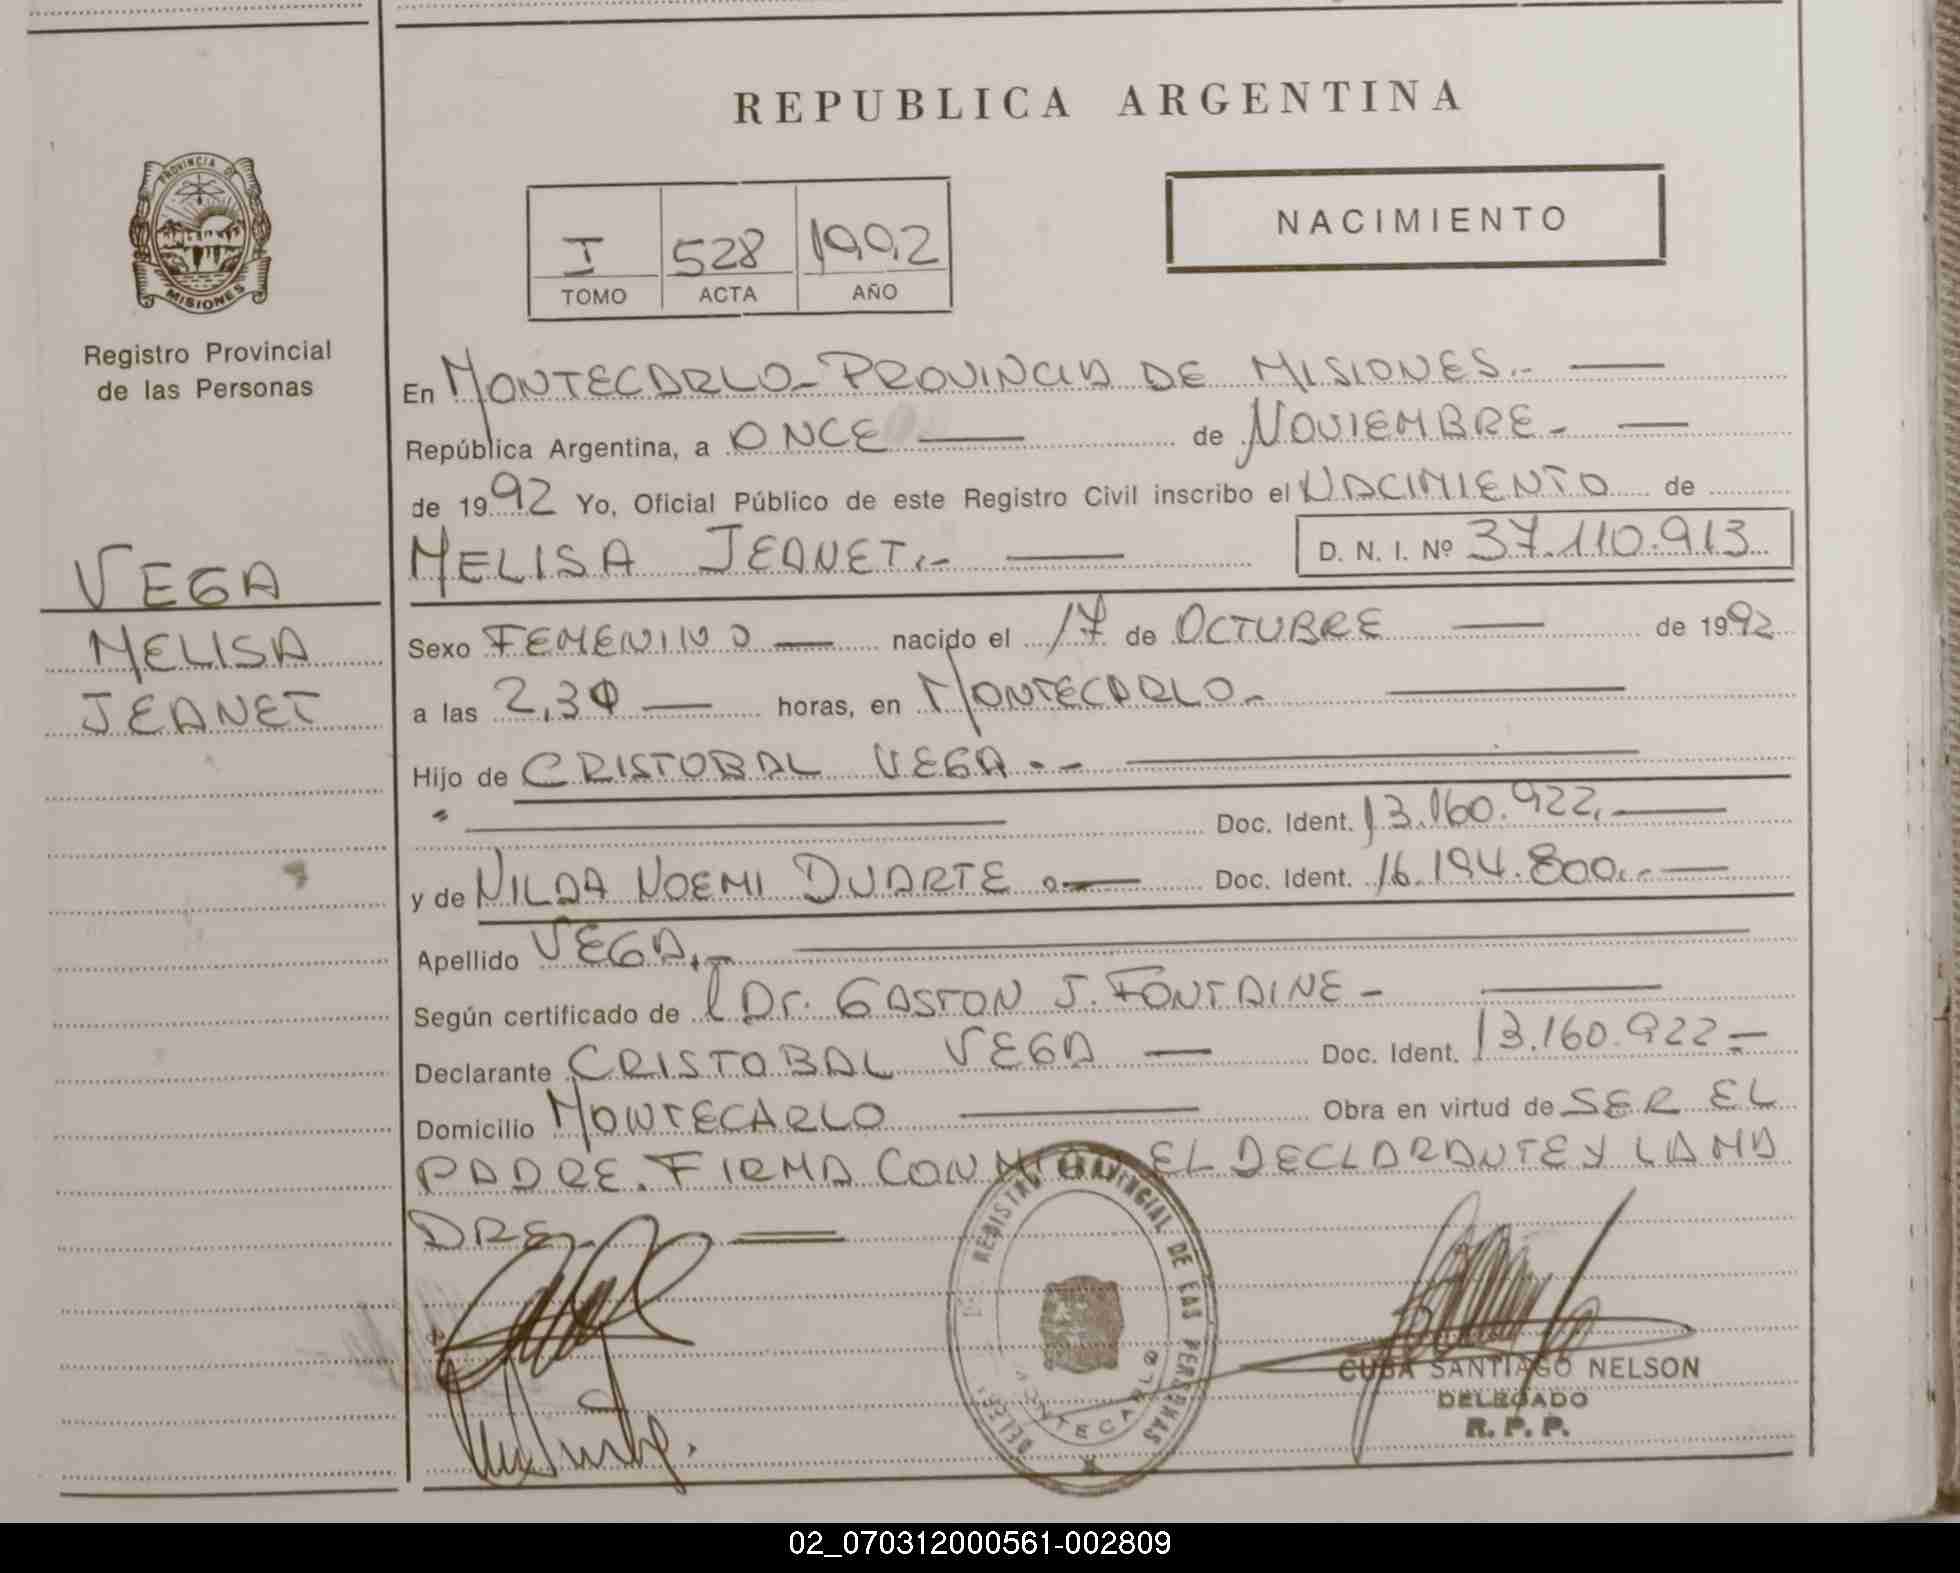 REPUBLICA ARGENTINA
PROVINCIA DE
MISIONES
Registro Provincial
de las Personas
I 528 1992
TOMO ACTA AÑO
NACIMIENTO
VEGA
MELISA
JEANET
En MONTECARLO - PROVINCIA DE MISIONES.-
República Argentina, a ONCE de NOVIEMBRE -
de 1992 Yo, Oficial Público de este Registro Civil inscribo el NACIMIENTO de
MELISA JEANET.- D. N. I. Nº 37.110.913
Sexo FEMENINO nacido el 17 de OCTUBRE de 1992
a las 2,30 horas, en MONTECARLO.-
Hijo de CRISTOBAL VEGA.-
Doc. Ident. 13.160.922.
y de NILDA NOEMI DUARTE Doc. Ident. 16.194.800.-
Apellido VEGA.-
Según certificado de Dr. GASTON J. FONTAINE -
Declarante CRISTOBAL VEGA Doc. Ident. 13.160.922-
Domicilio MONTECARLO Obra en virtud de SER EL
PADRE. FIRMA CONMIGO EL DECLARANTE Y LA MA
DRE.
REGISTRO PROVINCIAL DE LAS PERSONAS
MONTECARLO
CUBA SANTIAGO NELSON
DELEGADO
R. P. P.
02_070312000561-002809